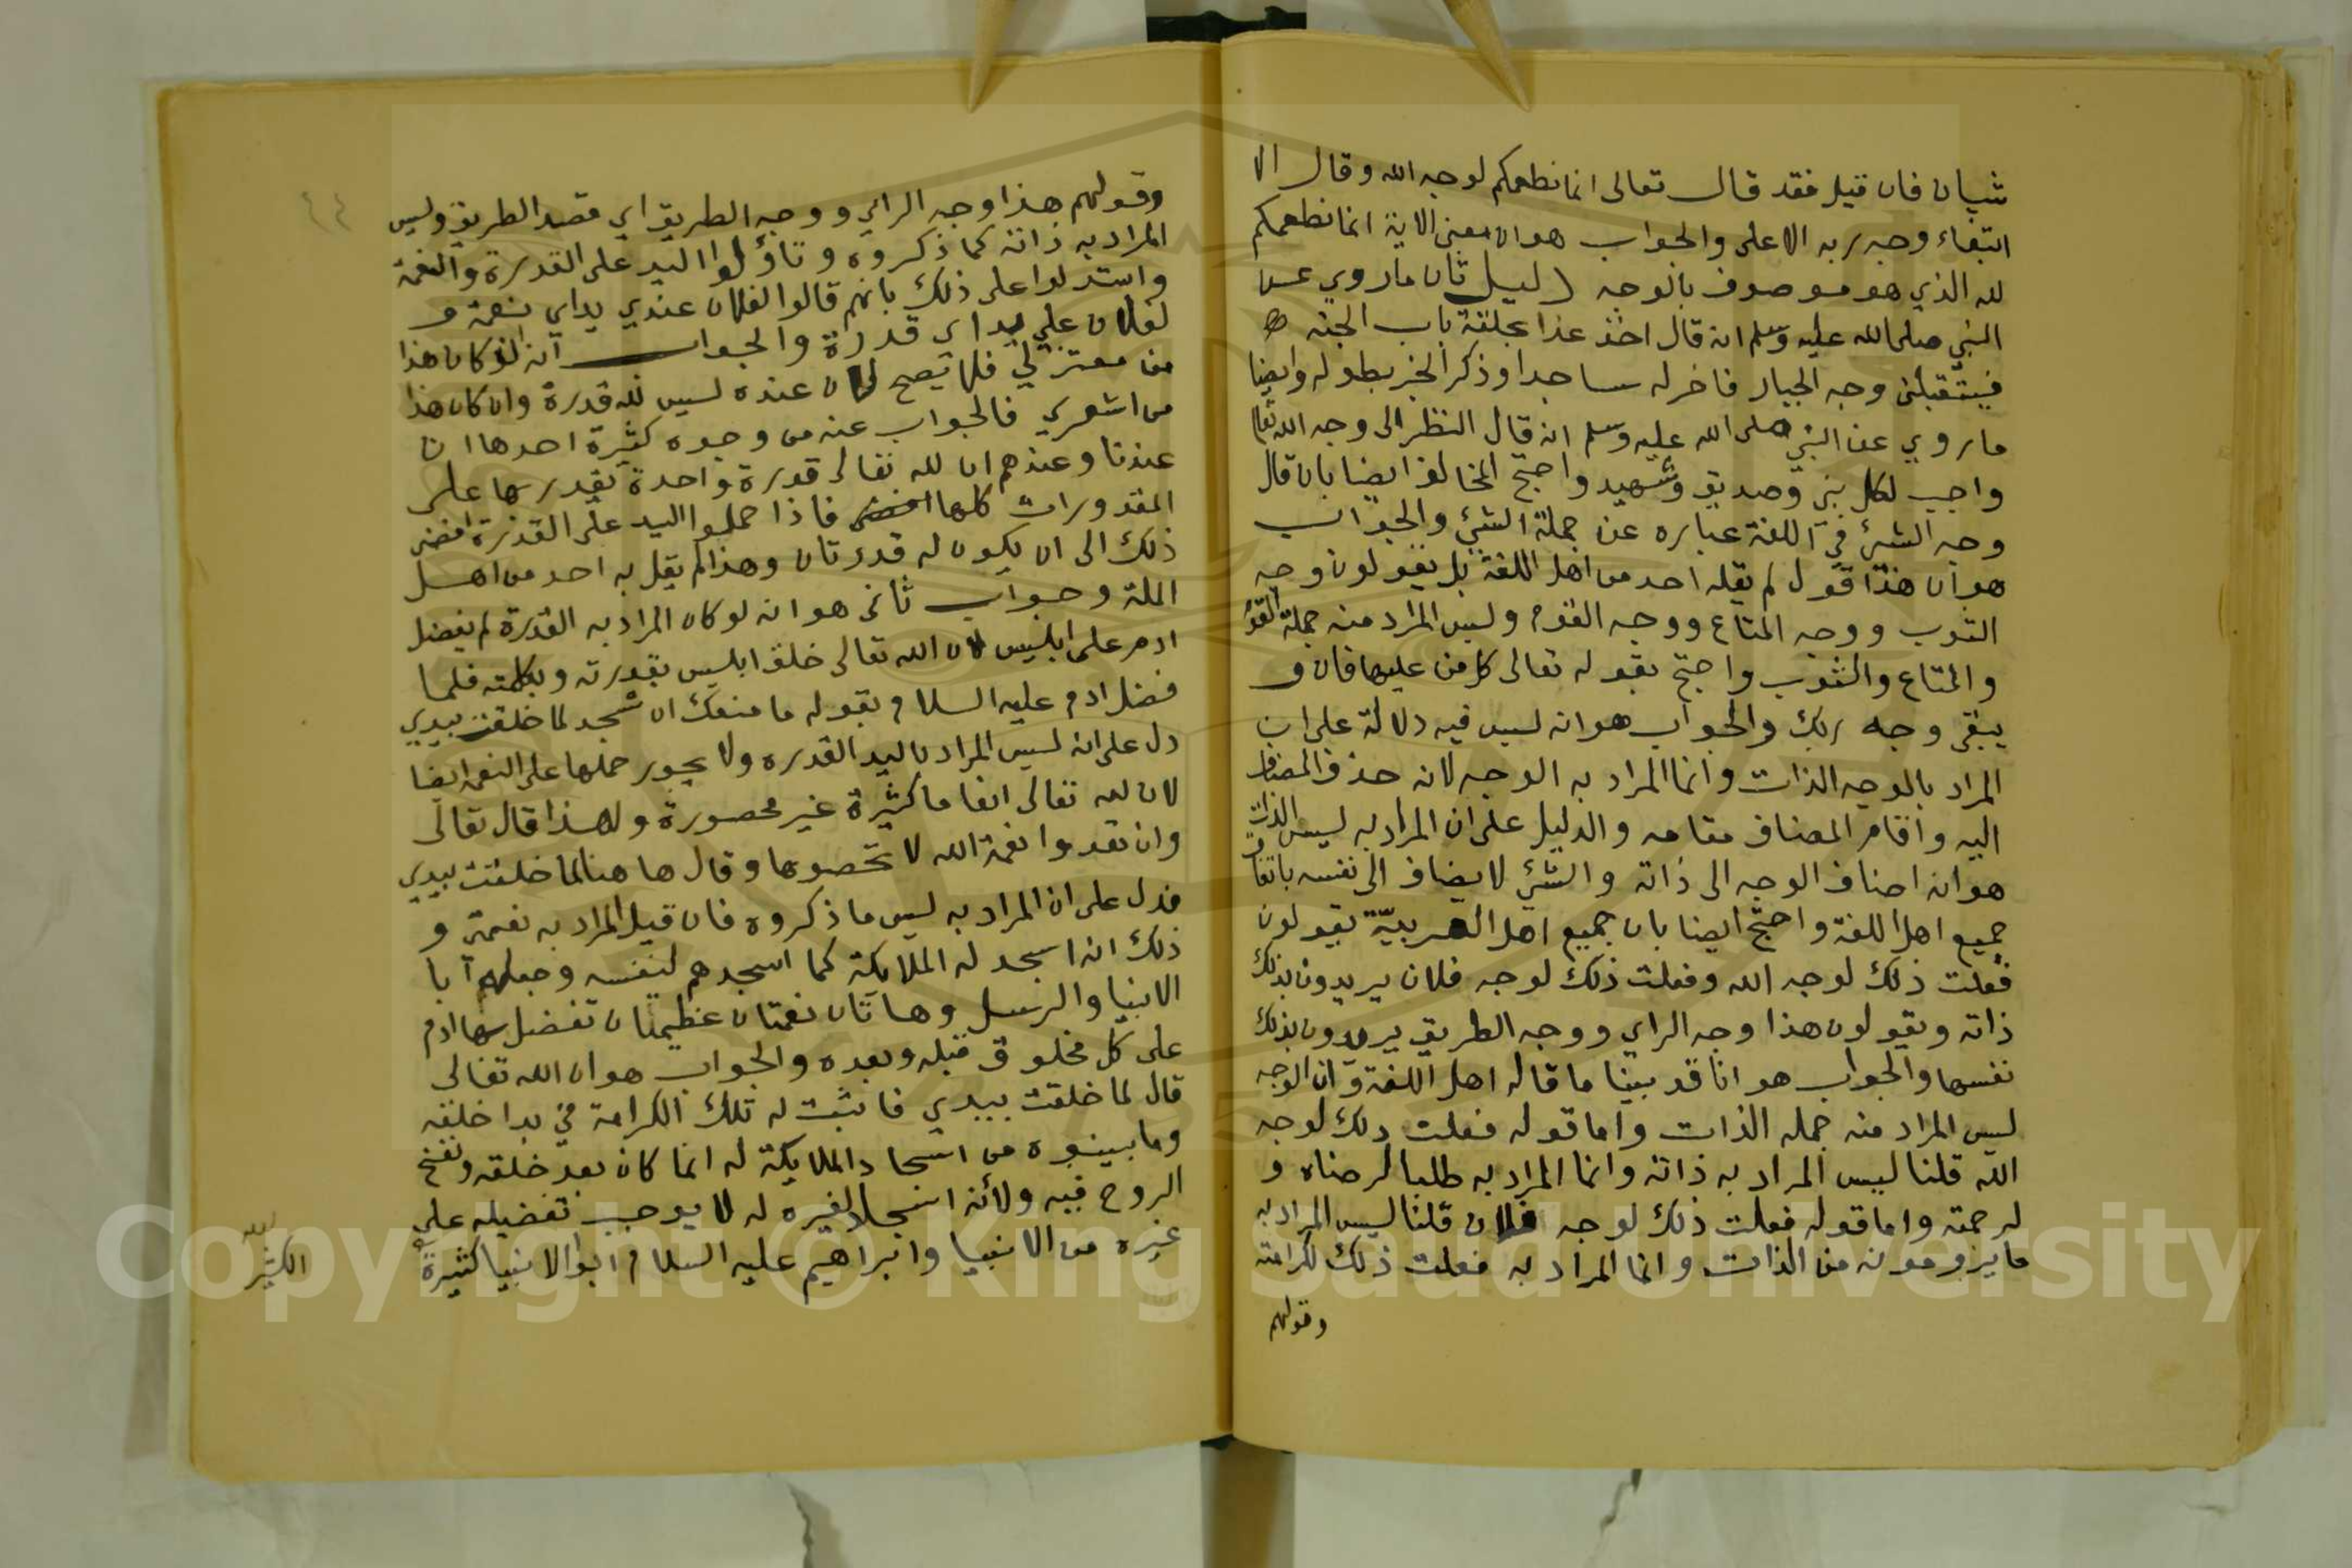 شيان فان قيل فقد قال تعالى انما نطعمكم لوجه الله وقال الا
ابتغاء وجه ربه الاعلى والجواب هو ان معنى الاية انما نطعمكم
لله الذي هو موصوف بالوجه دليل ثان ما روي عن
النبي صلى الله عليه وسلم انه قال اخذ غدا بحلقة باب الجنة
فيستقبلني وجه الجبار فاخر له ساجدا وذكر الخبر بطوله وايضا
ما روي عن النبي صلى الله عليه وسلم انه قال النظر الى وجه الله تعالى
واجب لكل نبي وصديق وشهيد واحتج المخالف ايضا بان قال
وجه الشئ في اللغة عباره عن جملة الشئ والجواب
هو ان هذا قول لم يقله احد من اهل اللغة بل يقولون وجه
الثوب ووجه المتاع ووجه القوم وليس المراد منه جملة القوم
والمتاع والثوب واحتج بقوله تعالى كل من عليها فان و
يبقى وجه ربك والجواب هو انه ليس فيه دلالة على ان
المراد بالوجه الذات وانما المراد به الوجه لانه حذف المضاف
اليه واقام المضاف مقامه والدليل على ان المراد به ليس الذات
هو انه اضاف الوجه الى ذاته والشئ لا يضاف الى نفسه باتفاق
جميع اهل اللغة واحتج ايضا بان جميع اهل العربيّة يقولون
فعلت ذلك لوجه الله وفعلت ذلك لوجه فلان يريدون بذلك
ذاته ويقولون هذا وجه الراي ووجه الطريق يريدون بذلك
نفسها والجواب هو انا قد بينا ما قاله اهل اللغة وان الوجه
ليس المراد منه جمله الذات واما قوله فعلت ذلك لوجه
الله قلنا ليس المراد به ذاته وانما المراد به طلبا لرضاه و
لرحمته واما قوله فعلت ذلك لوجه فلان قلنا ليس المراد به
ما يزوموْنه من الذات وانما المراد به فعلت ذلك لكرامته
وقولهم
وقولهم هذا وجه الراي ووجه الطريق اي قصد الطريق وليس
المراد به ذاته كما ذكروه وتاؤلوا اليد على القدرة والنعمة
واستدلوا على ذلك بانهم قالوا لفلان عندي يد اي نعمة و
لفلان علي يد اي قدرة والجواب انه ان كان هذا
من معتزلي فلا يصح لان عنده ليس لله قدرة وان كان هذا
من اشعري فالجواب عنه من وجوه كثيرة احدها ان
عندنا وعندهم ان لله تعالى قدرة واحدة يقدر بها على
المقدورات كلها فاذا حملوا اليد على القدرة افضى
ذلك الى ان يكون له قدرتان وهذا لم يقل به احد من اهل
الملة وجواب ثاني هو انه لو كان المراد به القدرة لم يفضل
ادم على ابليس لان الله تعالى خلق ابليس بقدرته وبكلمته فلما
فضل ادم عليه السلام بقوله ما منعك ان تسجد لما خلقت بيدي
دل على انه ليس المراد باليد القدره ولا يجوز حملها على النعم ايضا
لان لله تعالى انعاما كثيرة غير محصورة ولهذا قال تعالى
وان تعدوا نعمة الله لا تحصوها وقال ها هنا لما خلقت بيدي
فدل على ان المراد به ليس ما ذكروه فان قيل المراد به نعمتي و
ذلك انه اسجد له الملايكة كما اسجدهم لنفسه وجعلهم ابا
الانبيا والرسل وهاتان نعمتان عظيمتان تفضل بها ادم
على كل مخلوق قبله وبعده والجواب هو ان الله تعالى
قال لما خلقت بيدي فاثبت له تلك الكرامة في بدا خلقه
وما بينوه من اسجاد الملايكة له انما كان بعد خلقه ونفخ
الروح فيه ولأنه اسجد لغيره له لا يوجب تفضيله على
غيره من الانبيا وابراهيم عليه السلام ابو الانبيا كثيرة
الكثير
٤٤
Copyright © King Saud University